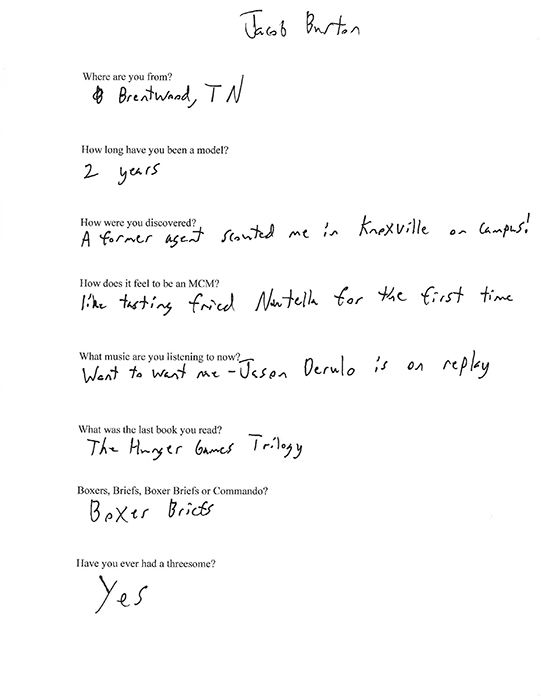 Jacob Burton
Where are you from?
Brentwood, TN
How long have you been a model?
2 years
How were you discovered?
A former agent scouted me in Knoxville on campus!
How does it feel to be an MCM?
like tasting fried Nutella for the first time
What music are you listening to now?
Want to want me - Jason Derulo is on replay
What was the last book you read?
The Hunger Games Trilogy
Boxers, Briefs, Boxer Briefs or Commando?
Boxer Briefs
Have you ever had a threesome?
Yes